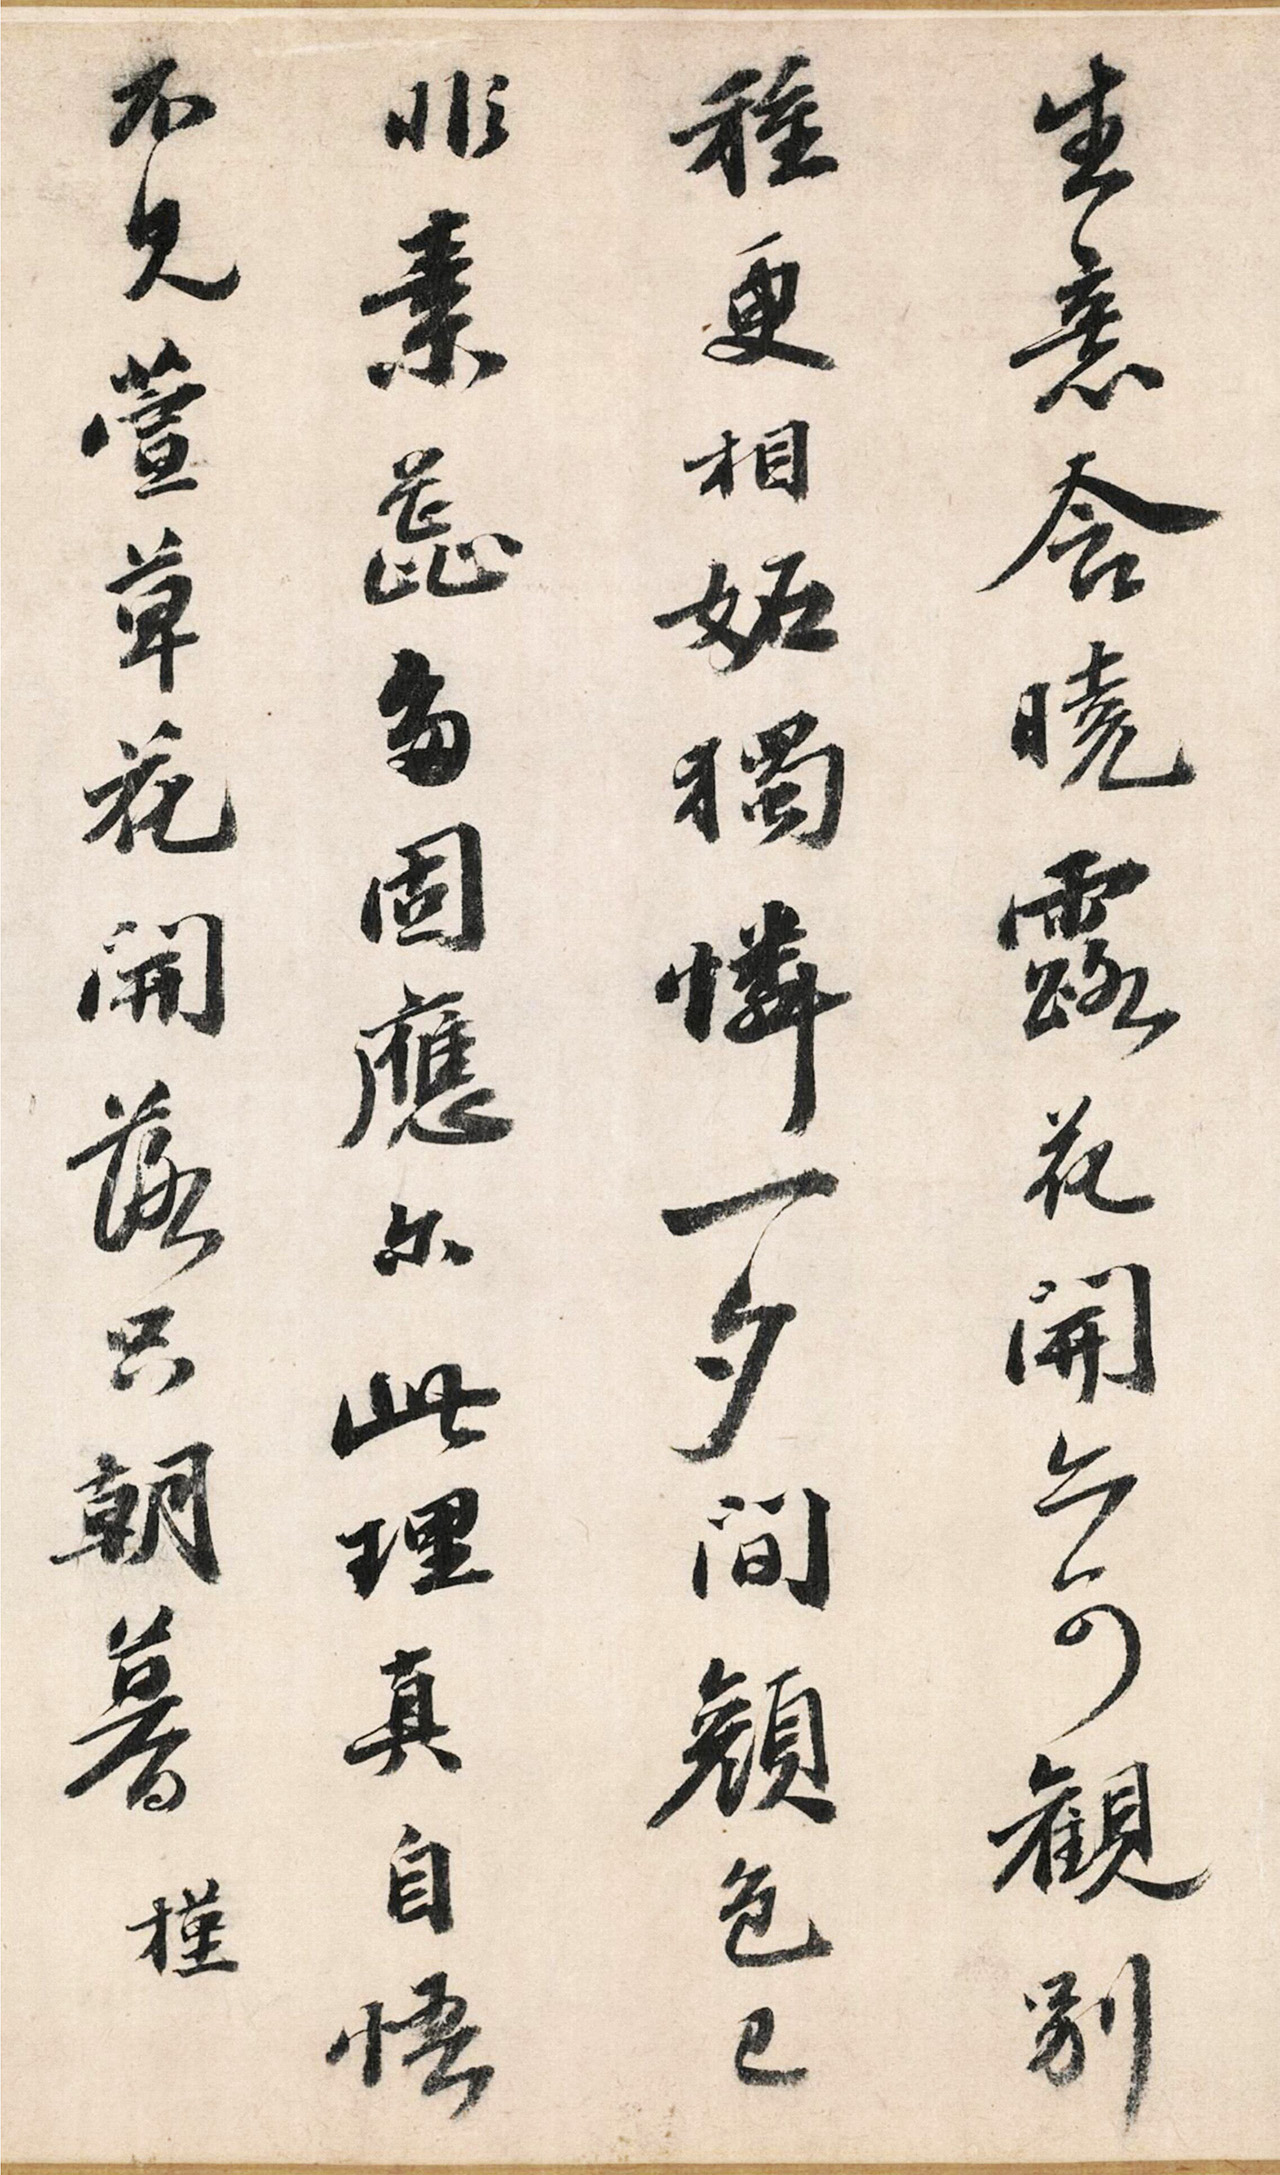 生意含曉露花開亦可觀別
種更相妬獨憐一夕間顏色已
非素蕋固應尔此理真自悟
不見萱草花開落只朝暮 槿